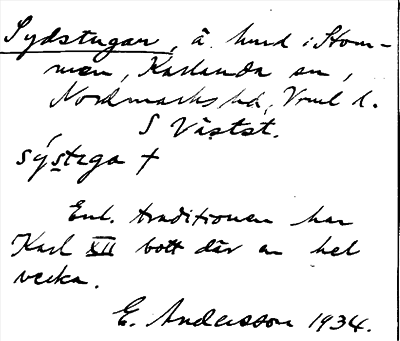 Sydstugan, å hmd i Stom-
men, Karlanda sn,
Nordmarks hd, Vrml l.
S Västst.
sýstega +
Enl. traditionen har
Karl XII bott där en hel
vecka.
E. Andersson 1934.